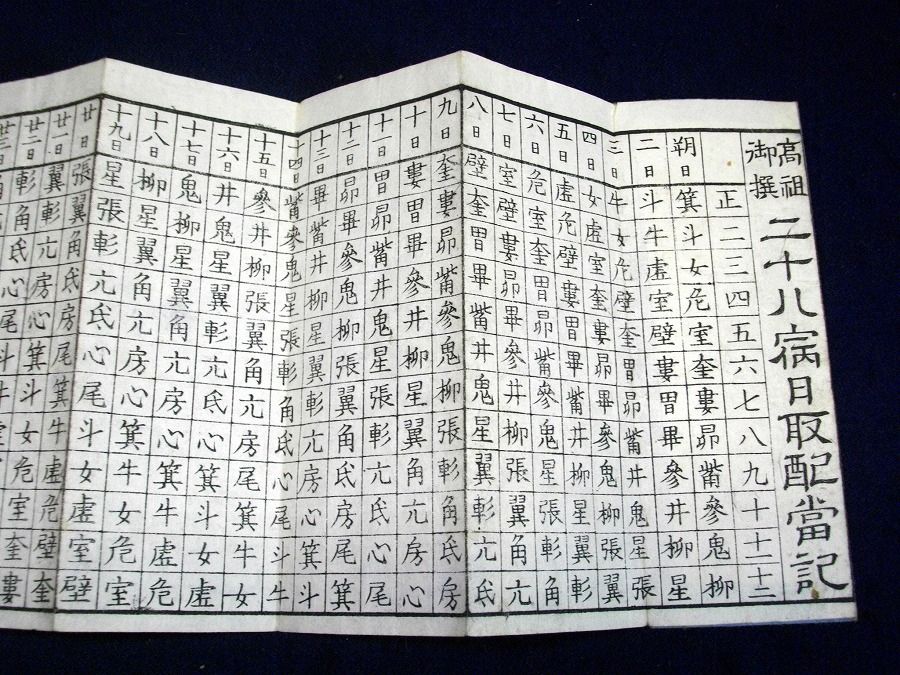 高祖御撰
二十八宿日取配當記
正二三四五六七八九十十一十二
朔日箕斗女危室奎婁昴觜參鬼柳
二日斗牛虚室壁婁胃畢參井柳星
三日牛女危壁奎胃昴觜井鬼星張
四日女虚室奎婁昴畢參鬼柳張翼
五日虚危壁婁胃畢觜井柳星翼軫
六日危室奎胃昴觜參鬼星張軫角
七日室壁婁昴畢參井柳張翼角亢
八日壁奎胃畢觜井鬼星翼軫亢氐
九日奎婁昴觜參鬼柳張軫角氐房
十日婁胃畢參井柳星翼角亢房心
十一日胃昴觜井鬼星張軫亢氐心尾
十二日昴畢參鬼柳張翼角氐房尾箕
十三日畢觜井柳星翼軫亢房心箕斗
十四日觜參鬼星張軫角氐心尾斗牛
十五日參井柳張翼角亢房尾箕牛女
十六日井鬼星翼軫亢氐心箕斗女虚
十七日鬼柳星翼角亢房心箕牛虚危
十八日柳星翼角亢房心箕牛女危室
十九日星張軫亢氐心尾斗女虚室壁
廿日張翼角氐房尾箕牛虚危壁奎
廿一日翼軫亢房心箕斗女危室奎婁
廿二日軫角氐心尾斗
廿三日